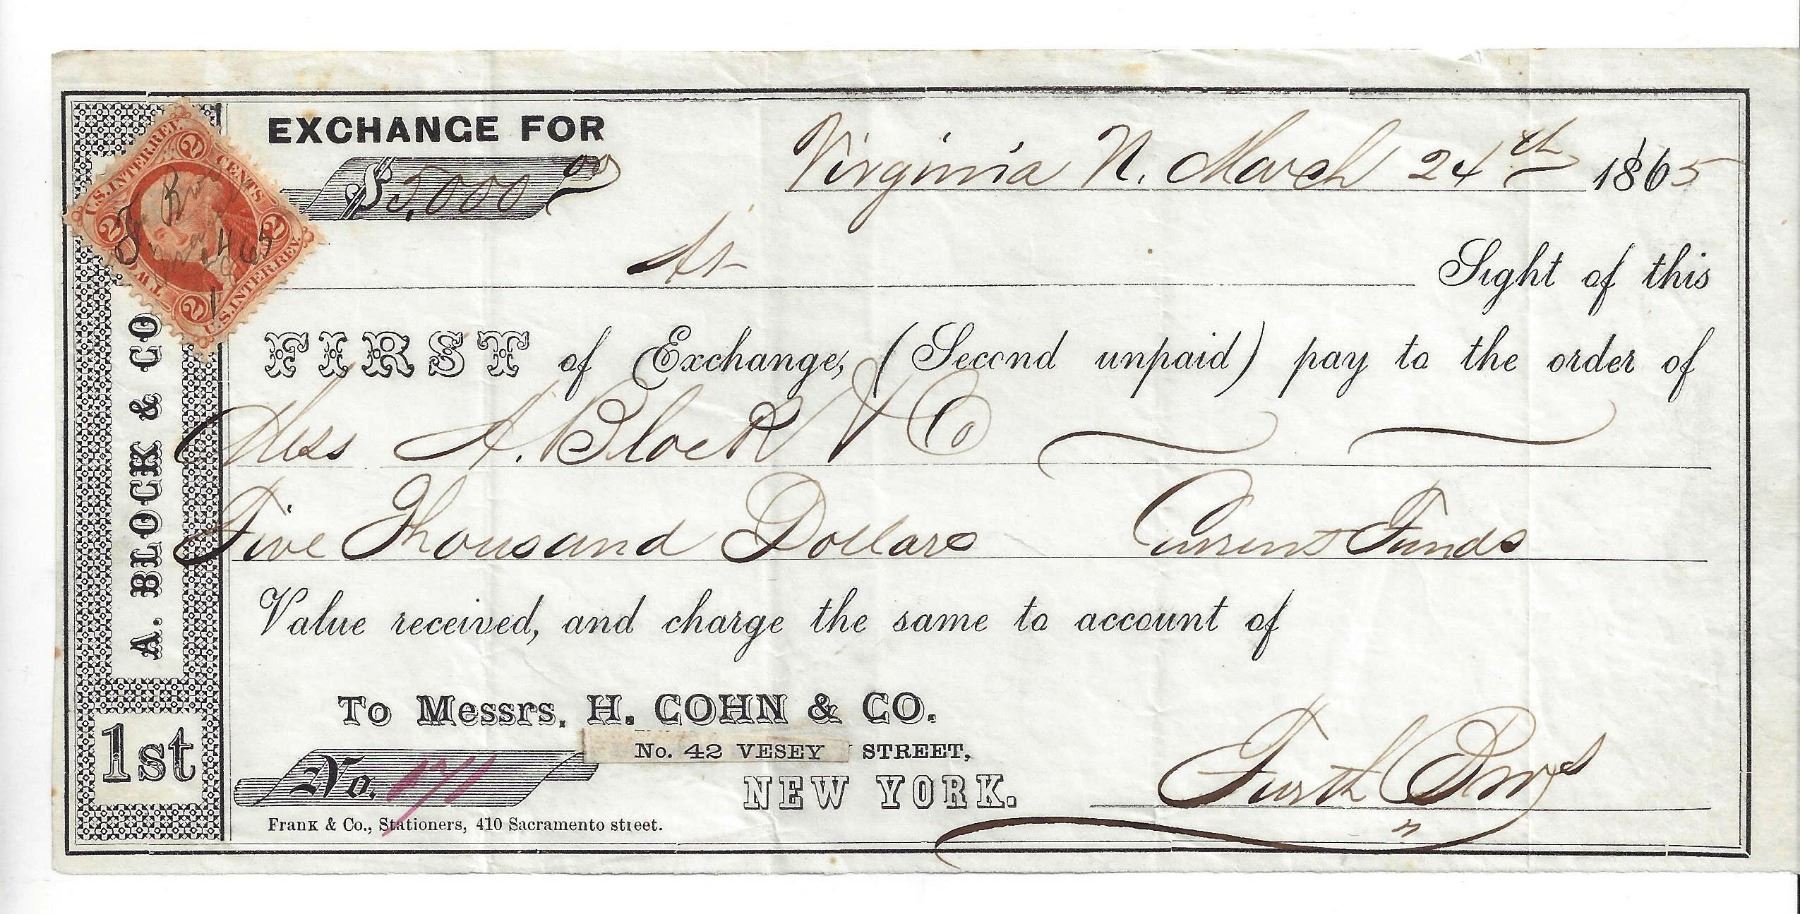 EXCHANGE FOR
$5,000 00
Virginia N. March 24th 1865
At Sight of this
FIRST of Exchange, (Second unpaid) pay to the order of
Mess A. Block & Co
Five Thousand Dollars Current Funds
Value received, and charge the same to account of
To Messrs. H. COHN & CO.
No. 42 VESEY STREET,
NEW YORK.
No. 171
Furth Bros
Frank & Co., Stationers, 410 Sacramento street.
A. BLOCK & CO
1st
U.S. INTER. REV.
2 CENTS 2
U.S. INTER. REV.